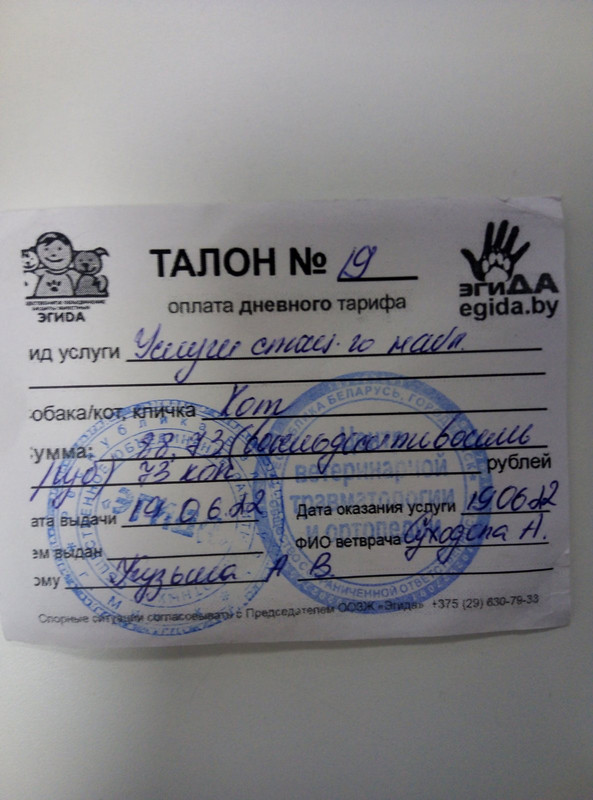 ТАЛОН № 19
ЭГИДА
ЭГИДА
egida.by
оплата дневного тарифа
ид услуги Услуги стац-го набл.
обака/кот, кличка Кот
умма: 88,73 (восемьдесят восемь
руб) 73 коп рублей
ата выдачи 19.06.22 Дата оказания услуги 19.06.22
ем выдан ФИО ветврача А.
ому Кузьма А В
Центр
ветеринарной
травматологии
и ортопедии
Спорные ситуации согласовывать с Председателем ООЗЖ «Эгида» +375 (29) 630-79-33